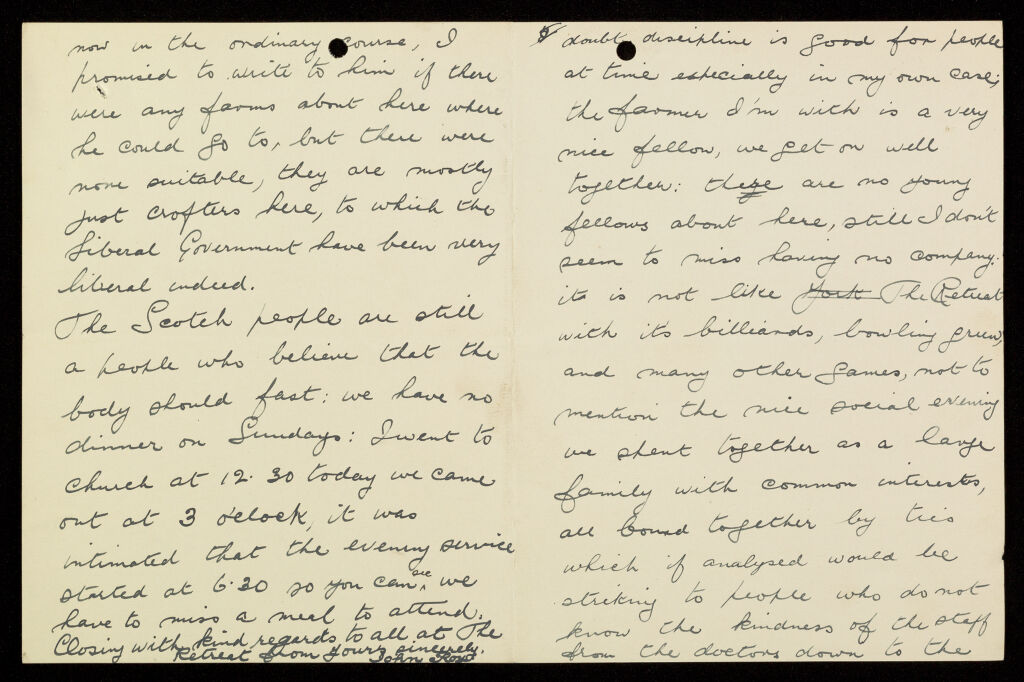 now in the ordinary course, I
promised to write to him if there
were any farms about here where
he could go to, but there were
none suitable, they are mostly
just crofters here, to which the
Liberal Government have been very
liberal indeed.
The Scotch people are still
a people who believe that the
body should fast: we have no
dinner on Sundays: I went to
church at 12.30 today we came
out at 3 o'clock, it was
intimated that the evening service
started at 6.30 so you can see we
have to miss a meal to attend.
Closing with kind regards to all at The
Retreat from yours sincerely.
John Ross
doubt discipline is good for people
at time especially in my own case;
the farmer I'm with is a very
nice fellow, we get on well
together: there are no young
fellows about here, still I don't
seem to miss having no company:
its is not like York The Retreat
with its billiards, bowling green,
and many other games, not to
mention the nice social evening
we spent together as a large
family with common interests,
all bound together by ties
which if analysed would be
striking to people who do not
know the kindness of the staff
from the doctors down to the